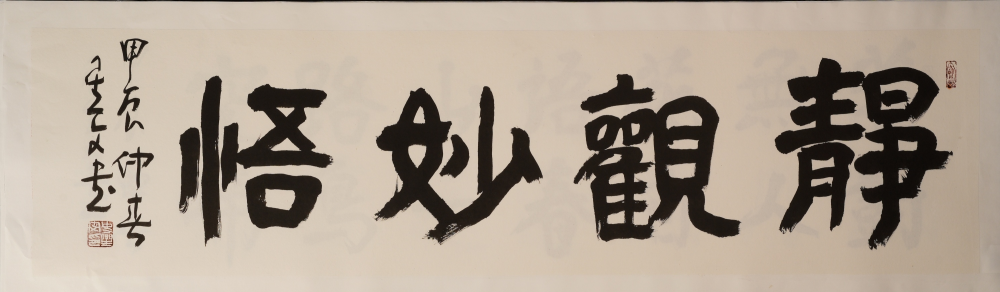 靜觀妙悟
甲辰仲春